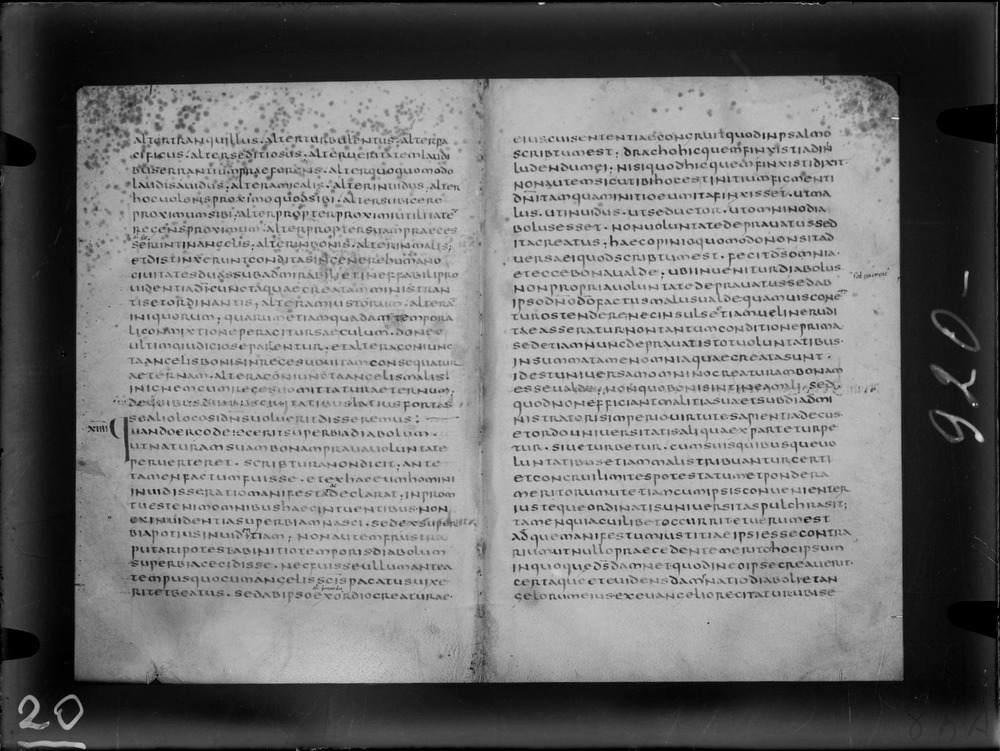 altertranquillus·alterturbulentus·alterpa
cificus·alterseditiosus·alterueritatemlaudi
buserrantiumpraeferens·alterquoquomodo
laudisauidus·alteramicalis·alterinuidus·alter
hocuolensproximoquodsibi·altersubicere
proximumsibi·alterpropterproximiutilitatē
regensproximum·alterproptersuampraeces
seruntinangelis·alterinbonis·alterinmalis;
etdistinxeruntconditasingenerehumano
ciuitatesduassubadmirabilietineffabilipro
uidentiadīcunctaquaecreataministran
tisetordinantis·alteramiustorum·alterā
iniquorum·quarumetiamquadamtempora
licommixtioneperagitursaeculum·donec
ultimoiudicioseparentur·etalteraconiunc
taangelisbonisinregesuouitamconsequatur
aeternam·alteraconiunctaangelismalisi
inignemcumregesuomittaturaeternum·
deq·ibusduabusciuitatibuslatiusfortas
sealiolocosidn̄suolueritdisseremus:
xiiii Quandoergodeiecerit superbiadiabolum·
utnaturamsuambonamprauauoluntate
peruerteret·scripturanondicit·ante
tamenfactumfuisse·etexhaceumhomini
inuidisseratiomanifestadeclarat·inprom
tuestenimomnibushaecintuentibusnon
exinuidentiasuperbiamnasci·sedexsuper
biapotiusinuidentiam·nonautemfrustra
putaripotestabinitiotemporisdiabolum
superbiacecidisse·necfuisseullumantea
tempusquocumangelisscīspacatusuixe
ritetbeatus·sedabipsoexordiocreaturae·
eiuscuisententiaecongruitquodinpsalmo
scriptumest·dracohicquemfinxistiadin
ludendumei·nisiquodhicquemfinxistidixit·
nonautemsicutibihocestinitiumfigmenti
dn̄itamquaminitioeumitafinxisset·utma
lus·utinuidus·utseductor·utomninodia
bolusesset·nonuoluntatedeprauatussed
itacreatus·haecopinioquomodononsitad
uersaeiquodscriptumest·fecitdsomnia·
eteccebonaualde·ubiinuenitur diabolus
nonpropriauoluntatedeprauatussedab
ipsodnōdofactusmalusualdequamuisconē
turostenderenecinsulseetiamuelinerudi
taeasseraturnontantumconditioneprima·
sedetiamnuncdeprauatistotuoluntatibus·
insummatamenomniaquaecreatasunt·
idestuniversamomninocreaturambonam
essevalde·nonquobonisintineamali·sed
quodnonefficiantmalitiasuaetsubdiadmi
nistratorisimperiouirtutesapientiadecus·
etordouniuersitatisaliquaexparteturpe
tur·siueturbetur·cumsuisquibusqueuo
luntatibusetiammalistribuanturcerti
etcongruilimitespotestatumetpondera
meritorumutetiamcumipsisconuenienter
iustequeordinatisuniuersitaspulchrasit;
tamenquiacuilibetoccurritetuerumest
adquemanifestumiustitiaeipsiessecontra
riumutnullopraecedentemeritohocipsum
inquoquedsdamnetquodineoipsecreauerit·
certaqueeteuidensdamnatiodiabolietan
gelorumeiusexeuangeliorecitaturubise
920-
20